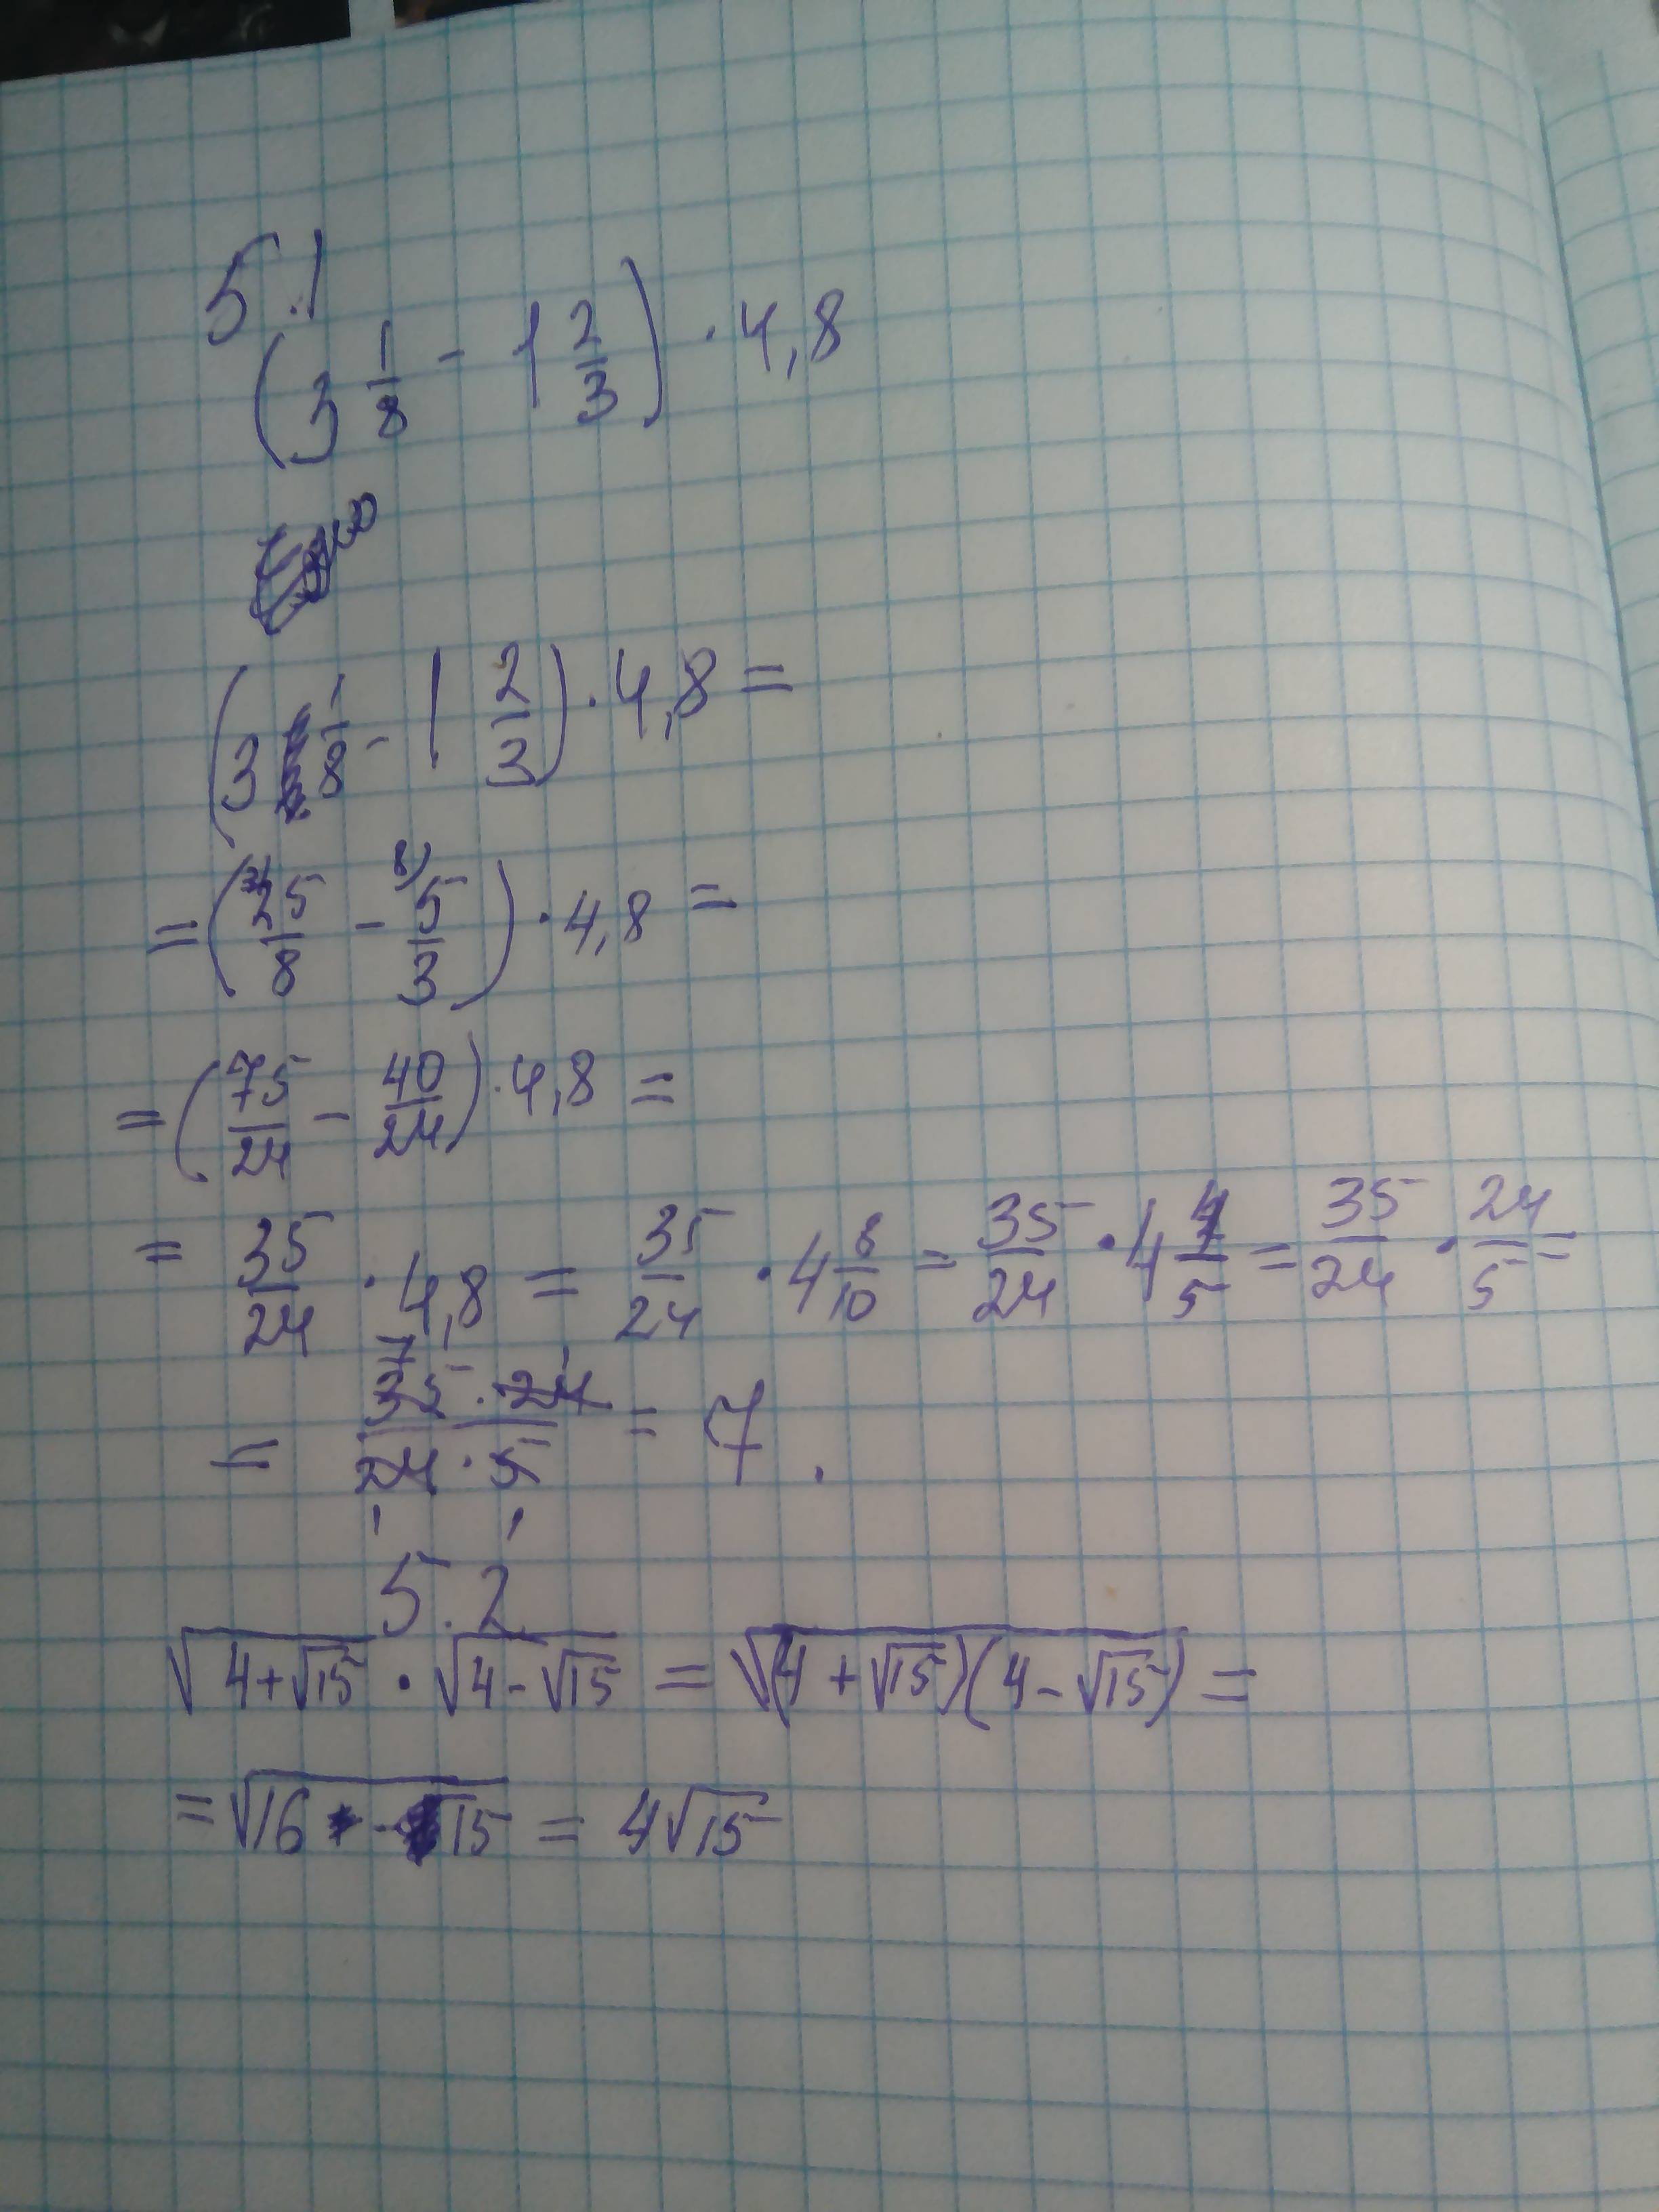 5.1
(3 1/8 - 1 2/3) · 4,8
(3 1/8 - 1 2/3) · 4,8 =
= (3) 25/8 - 8) 5/3) · 4,8 =
= (75/24 - 40/24) · 4,8 =
= 35/24 · 4,8 = 35/24 · 4 8/10 = 35/24 · 4 4/5 = 35/24 · 24/5 =
7 1
= 35 · 24 / 24 · 5 = 7.
1 1
5.2
√(4+√15) · √(4-√15) = √((4+√15)(4-√15)) =
= √(16 - 15) = 4√15